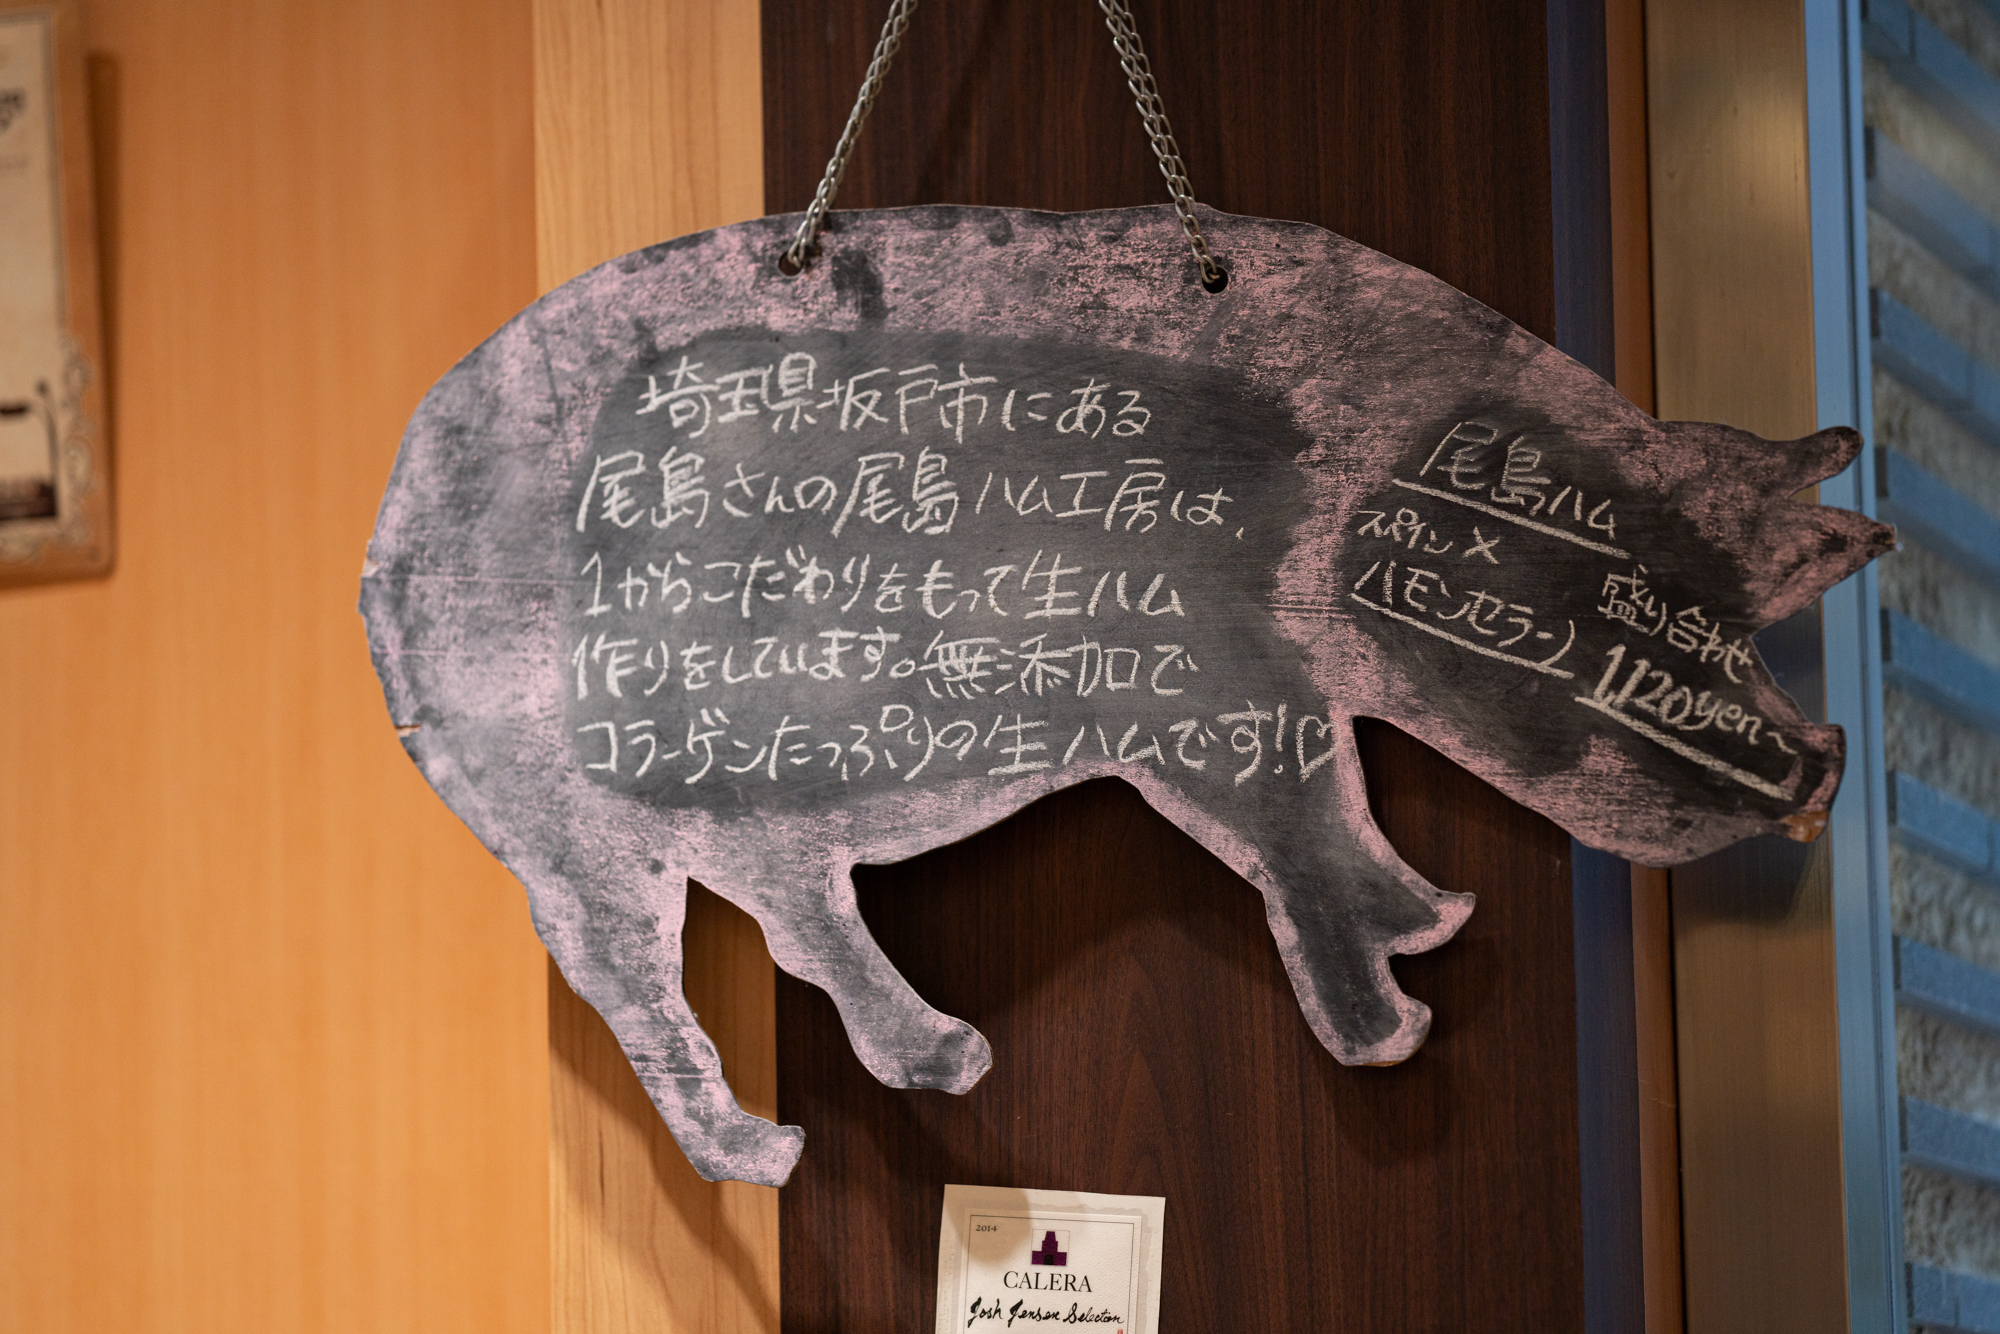 埼玉県坂戸市にある
尾島さんの尾島ハム工房は、
1からこだわりをもって生ハム
作りをしています。無添加で
コラーゲンたっぷりの生ハムです!♡
尾島ハム
スペイン×
ハモンセラーノ
盛り合わせ
1,120yen~
2014
CALERA
Josh Jensen Selection